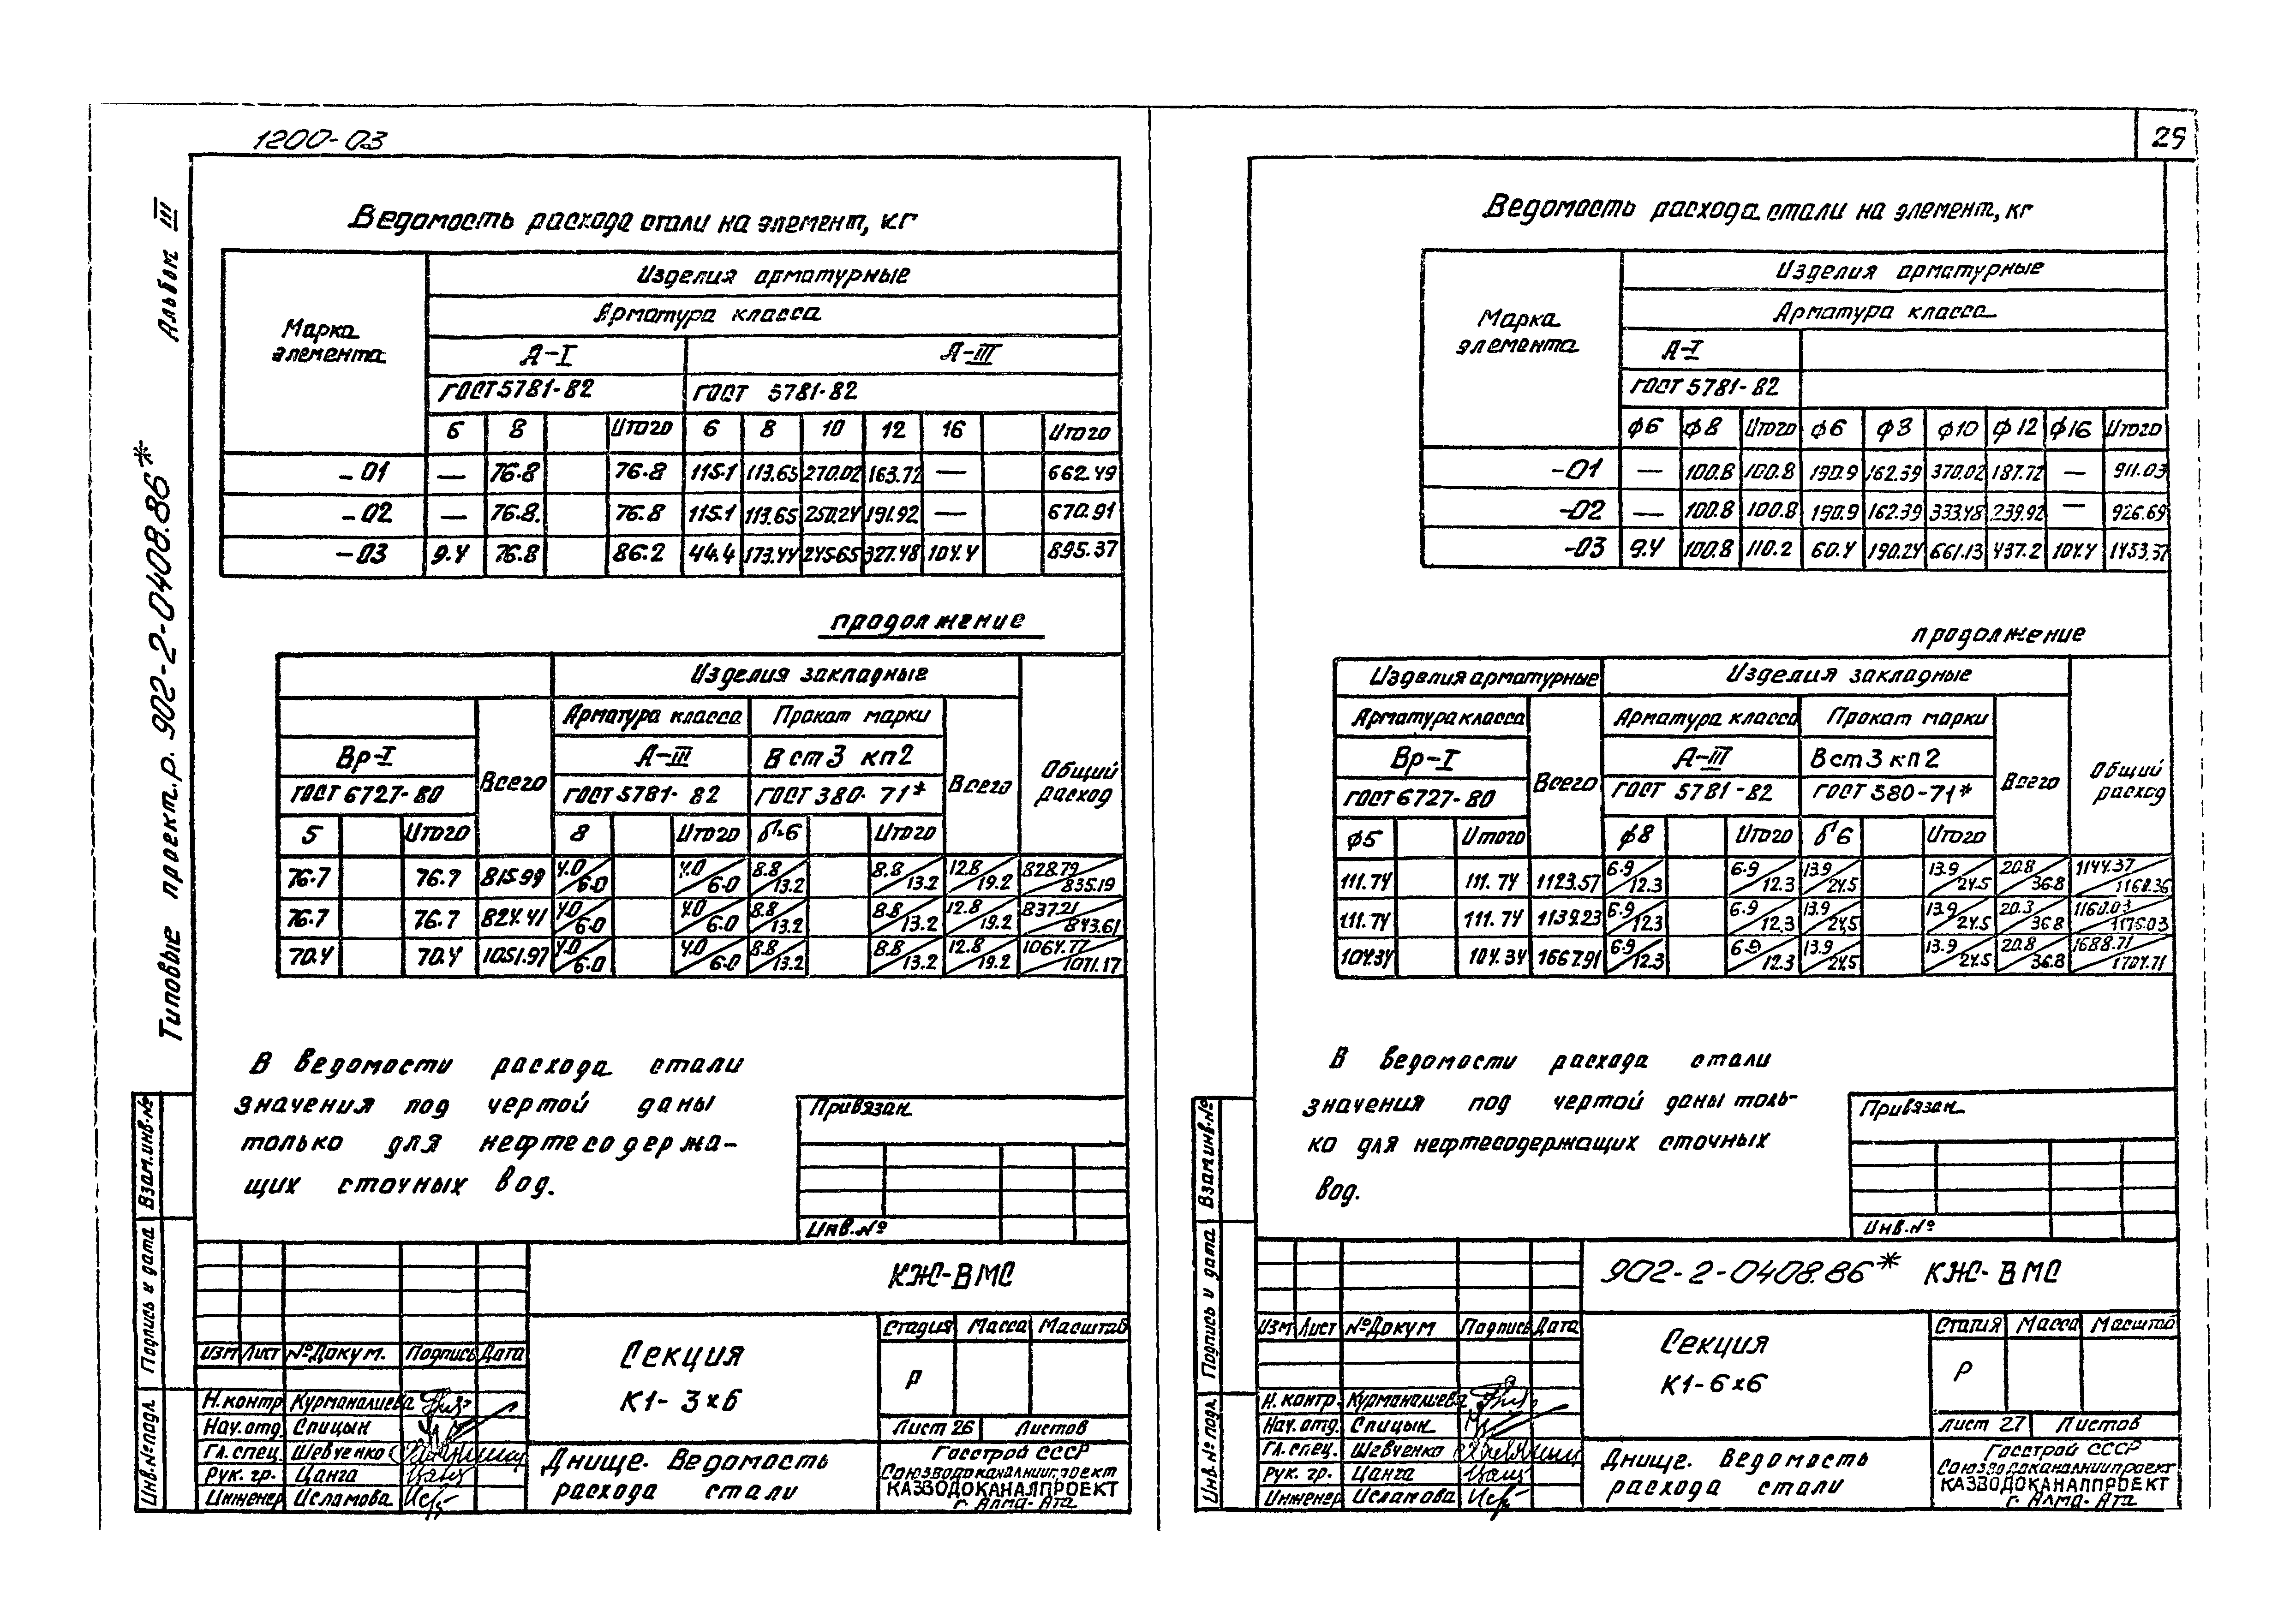 1200-03
Альбом III
Типовые проект.р. 902-2-0408.86*
Ведомость расхода стали на элемент, кг
Марка элемента
Изделия арматурные
Арматура класса
А-I А-III
ГОСТ 5781-82 ГОСТ 5781-82
6 8 Итого 6 8 10 12 16 Итого
-01 — 76.8 76.8 115.1 113.65 270.02 163.72 — 662.49
-02 — 76.8. 76.8 115.1 113.65 250.24 191.92 — 670.91
-03 9.4 76.8 86.2 44.4 173.44 245.65 327.48 104.4 895.37
продолжение
Изделия закладные
Арматура класса Прокат марки
Вр-I Всего А-III В ст3 кп2 Всего Общий расход
ГОСТ 6727-80 ГОСТ 5781-82 ГОСТ 380-71*
5 Итого 8 Итого δ-6 Итого
76.7 76.7 815.99 4.0/6.0 4.0/6.0 8.8/13.2 8.8/13.2 12.8/19.2 828.79/835.19
76.7 76.7 824.41 4.0/6.0 4.0/6.0 8.8/13.2 8.8/13.2 12.8/19.2 837.21/843.61
70.4 70.4 1051.97 4.0/6.0 4.0/6.0 8.8/13.2 8.8/13.2 12.8/19.2 1064.77/1071.17
В ведомости расхода стали
значения под чертой даны
только для нефтесодержа-
щих сточных вод.
Привязан
Инв.№
Взам.инв.№
Подпись и дата
Инв.№ подл.
КЖ-ВМС
Изм Лист №Докум. Подпись Дата
Н.контр Курманалиева
Нач.отд. Спицын
Гл.спец. Шевченко
Рук. гр. Цанга
Инженер Исламова
Секция
К1-3х6
Стадия Масса Масштаб
Р
Лист 26 Листов
Днище. Ведомость
расхода стали
Госстрой СССР
Союзводоканалниипроект
КАЗВОДОКАНАЛПРОЕКТ
г. Алма-Ата
29
Ведомость расхода стали на элемент, кг
Марка элемента
Изделия арматурные
Арматура класса
А-I
ГОСТ 5781-82
ф6 ф8 Итого ф6 ф8 ф10 ф12 ф16 Итого
-01 — 100.8 100.8 190.9 162.39 370.02 187.72 — 911.03
-02 — 100.8 100.8 190.9 162.39 333.48 239.92 — 926.69
-03 9.4 100.8 110.2 60.4 190.24 661.13 437.2 104.4 1453.37
продолжение
Изделия арматурные Изделия закладные
Арматура класса Арматура класса Прокат марки
Вр-I Всего А-III В ст3 кп2 Всего Общий расход
ГОСТ 6727-80 ГОСТ 5781-82 ГОСТ 380-71*
ф5 Итого ф8 Итого δ6 Итого
111.74 111.74 1123.57 6.9/12.3 6.9/12.3 13.9/24.5 13.9/24.5 20.8/36.8 1144.37/1160.36
111.74 111.74 1139.23 6.9/12.3 6.9/12.3 13.9/24.5 13.9/24.5 20.3/36.8 1160.03/1176.03
104.34 104.34 1667.91 6.9/12.3 6.9/12.3 13.9/24.5 13.9/24.5 20.8/36.8 1688.71/1704.71
В ведомости расхода стали
значения под чертой даны толь-
ко для нефтесодержащих сточных
вод.
Привязан
Инв.№
Взам.инв.№
Подпись и дата
Инв.№ подл.
902-2-0408.86* КЖ-ВМС
Изм Лист №Докум Подпись Дата
Н.контр. Курманалиева
Нач.отд. Спицын
Гл.спец. Шевченко
Рук. гр. Цанга
Инженер Исламова
Секция
К1-6х6
Стадия Масса Масштаб
Р
Лист 27 Листов
Днище. Ведомость
расхода стали
Госстрой СССР
Союзводоканалниипроект
КАЗВОДОКАНАЛПРОЕКТ
г. Алма-Ата